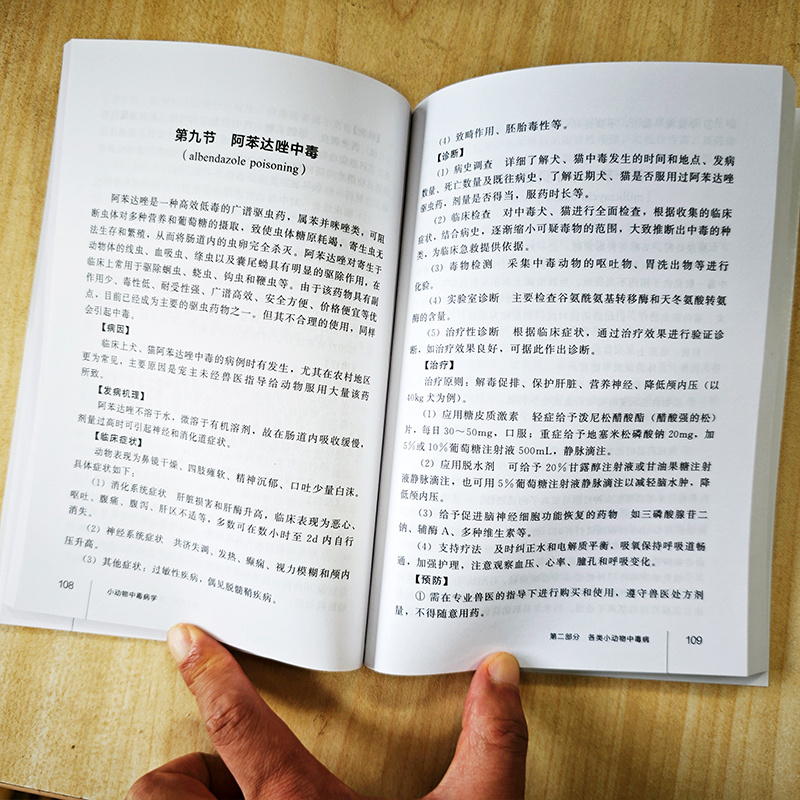 第九节　阿苯达唑中毒
(albendazole poisoning)
阿苯达唑是一种高效低毒的广谱驱虫药，属苯并咪唑类，可阻
断虫体对多种营养和葡萄糖的摄取，致使虫体糖原耗竭，寄生虫无
法生存和繁殖，从而将肠道内的虫卵完全杀灭。阿苯达唑对寄生于
动物体的线虫、血吸虫、绦虫以及囊尾蚴具有明显的驱除作用，在
临床上常用于驱除蛔虫、蛲虫、钩虫和鞭虫等。由于该药物具有副
作用少、毒性低、耐受性强、广谱高效、安全方便、价格便宜等优
点，目前已经成为主要的驱虫药物之一。但其不合理的使用，同样
会引起中毒。
【病因】
临床上犬、猫阿苯达唑中毒的病例时有发生，尤其在农村地区
更为常见，主要原因是宠主未经兽医指导给动物服用大量该药
所致。
【发病机理】
阿苯达唑不溶于水，微溶于有机溶剂，故在肠道内吸收缓慢，
剂量过高时可引起神经和消化道症状。
【临床症状】
动物表现为鼻镜干燥、四肢瘫软、精神沉郁、口吐少量白沫。
具体症状如下：
(1) 消化系统症状　肝脏损害和肝酶升高，临床表现为恶心、
呕吐、腹痛、腹泻、肝区不适等，多数可在数小时至 2d 内自行
消失。
(2) 神经系统症状　共济失调、发热、癫痫、视力模糊和颅内
压升高。
(3) 其他症状：过敏性疾病，偶见脱髓鞘疾病。
108
小动物中毒病学
(4) 致畸作用、胚胎毒性等。
【诊断】
(1) 病史调查　详细了解犬、猫中毒发生的时间和地点、发病
数量、死亡数量及既往病史，了解近期犬、猫是否服用过阿苯达唑
驱虫药，剂量是否得当，服药时长等。
(2) 临床检查　对中毒犬、猫进行全面检查，根据收集的临床
症状，结合病史，逐渐缩小可疑毒物的范围，大致推断出中毒的种
类，为临床急救提供依据。
(3) 毒物检测　采集中毒动物的呕吐物、胃洗出物等进行
化验。
(4) 实验室诊断　主要检查谷氨酰氨基转移酶和天冬氨酸转氨
酶的含量。
(5) 治疗性诊断　根据临床症状，通过治疗效果进行验证诊
断，如治疗效果良好，可据此作出诊断。
【治疗】
治疗原则：解毒促排、保护肝脏、营养神经、降低颅内压（以
40kg 犬为例）。
(1) 应用糖皮质激素　轻症给予泼尼松醋酸酯（醋酸强的松）
片，每日 30～50mg，口服；重症给予地塞米松磷酸钠 20mg，加
5％或 10％葡萄糖注射液 500mL，静脉滴注。
(2) 应用脱水剂　可给予 20％甘露醇注射液或甘油果糖注射
液静脉滴注，也可用 5％葡萄糖注射液静脉滴注以减轻脑水肿，降
低颅内压。
(3) 给予促进脑神经细胞功能恢复的药物　如三磷酸腺苷二
钠、辅酶 A、多种维生素等。
(4) 支持疗法　及时纠正水和电解质平衡，吸氧保持呼吸道畅
通，加强护理，注意观察血压、心率、瞳孔和呼吸变化。
【预防】
① 需在专业兽医的指导下进行购买和使用，遵守兽医处方剂
量，不得随意用药。
第二部分　各类小动物中毒病
109